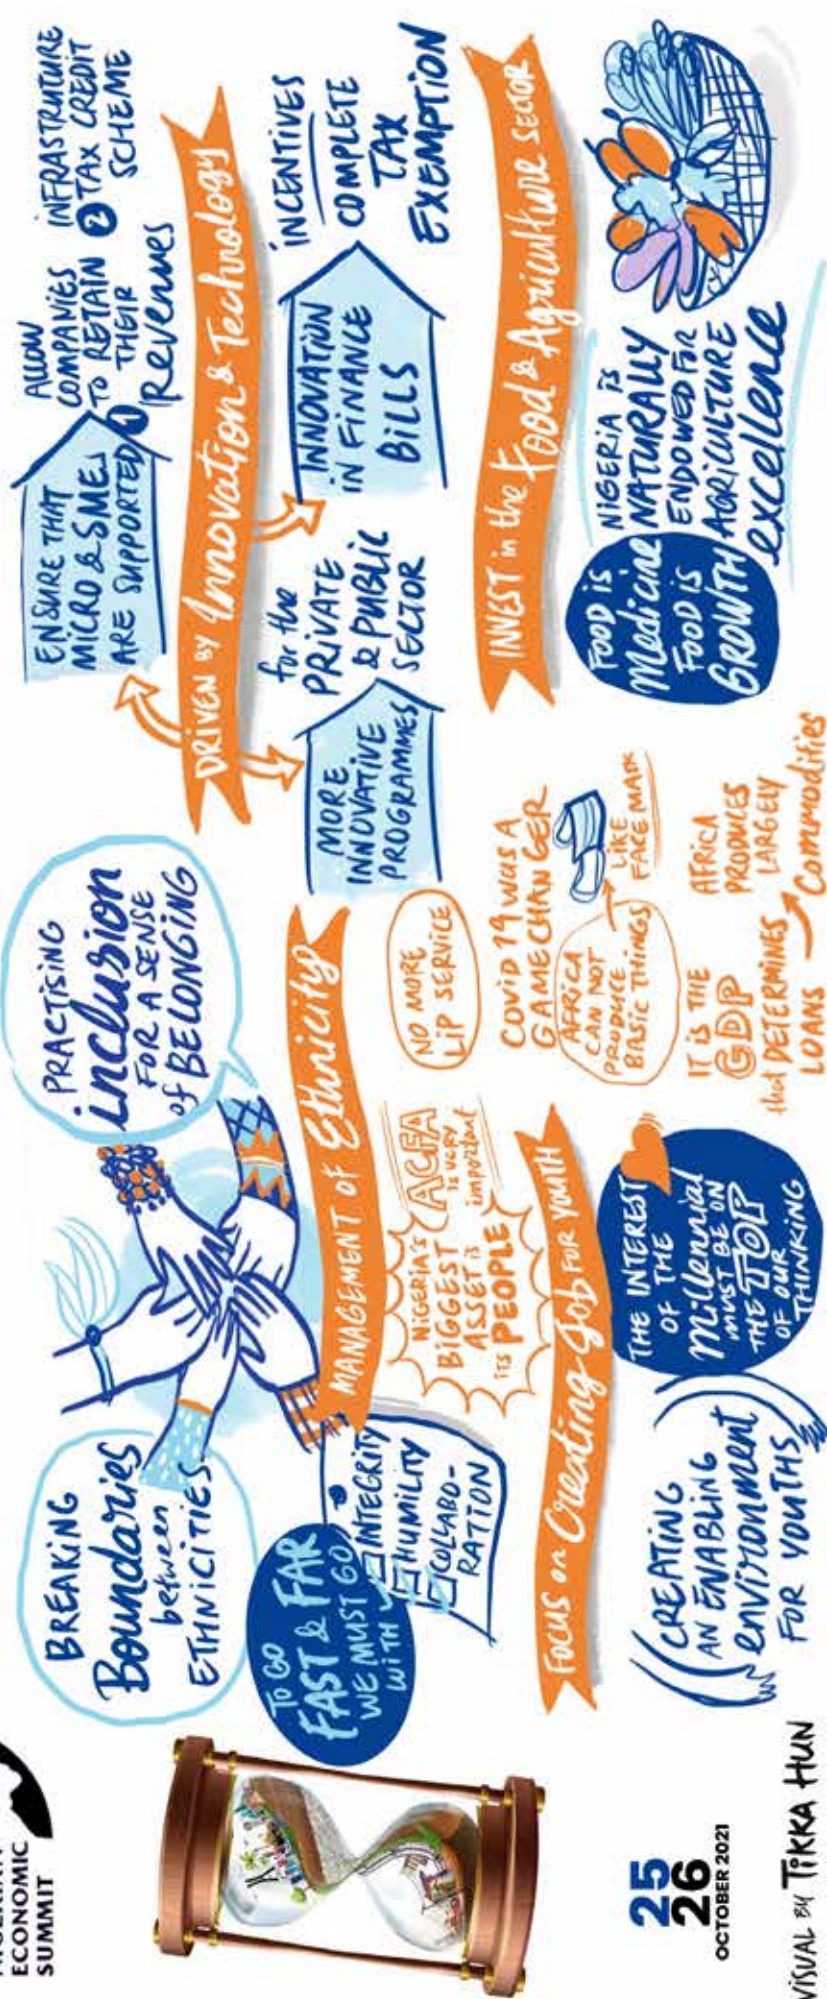 ECONOMIC
SUMMIT
25
26
OCTOBER 2021
VISUAL BY TIKKA HUN
BREAKING
Boundaries
between
ETHNICITIES
PRACTISING
inclusion
FOR A SENSE
of BELONGING
MANAGEMENT OF Ethnicity
TO GO
FAST & FAR
WE MUST GO
WITH
INTEGRITY
HUMILITY
COLLABO-
RATION
NIGERIA'S
BIGGEST
ASSET IS
ITS PEOPLE
ACFA
IS VERY
important
NO MORE
LIP SERVICE
FOCUS on Creating Job FOR YOUTH
CREATING
AN ENABLING
environment
FOR YOUTHS
THE INTEREST
OF THE
Millennial
MUST BE ON
THE TOP
OF OUR
THINKING
COVID 19 WAS A
GAME CHANGER
AFRICA
CAN NOT
PRODUCE
BASIC THINGS
LIKE
FACE MASK
IT IS THE
GDP
that DETERMINES
LOANS
AFRICA
PRODUCES
LARGELY
Commodities
DRIVEN BY Innovation & Technology
ENSURE THAT
MICRO & SMEs
ARE SUPPORTED
1
ALLOW
COMPANIES
TO RETAIN
THEIR
Revenues
2
INFRASTRUTURE
TAX CREDIT
SCHEME
MORE
INNOVATIVE
PROGRAMMES
for the
PRIVATE
& PUBLIC
SECTOR
INNOVATION
IN FINANCE
BILLS
INCENTIVES
COMPLETE
TAX
EXEMPTION
INVEST in the Food & Agriculture SECTOR
FOOD IS
Medicine
FOOD IS
GROWTH
NIGERIA IS
NATURALLY
ENDOWED FOR
AGRICULTURE
excellence